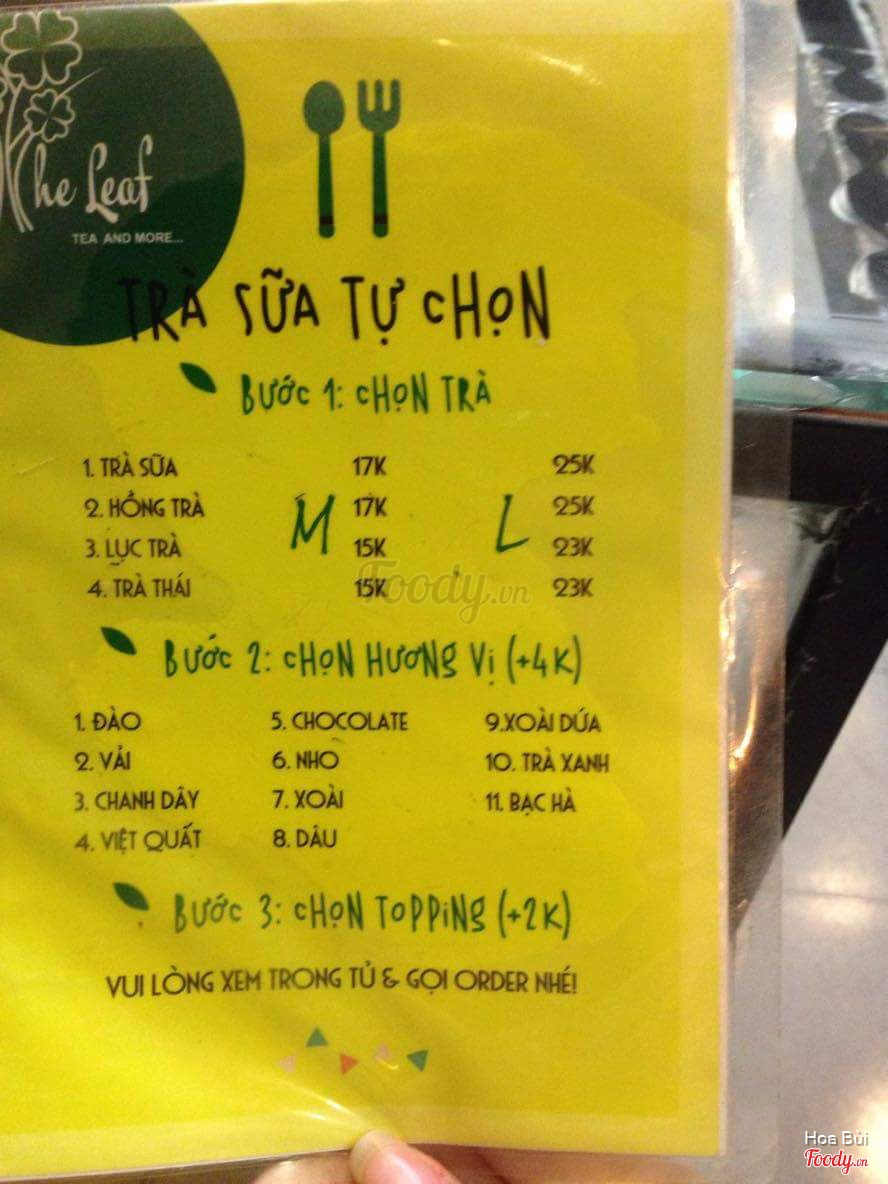 The Leaf
TEA AND MORE...
TRÀ SỮA TỰ CHỌN
BƯỚC 1: CHỌN TRÀ
1. TRÀ SỮA 17K 25K
2. HỒNG TRÀ 17K 25K
M L
3. LỤC TRÀ 15K 23K
4. TRÀ THÁI 15K 23K
Foody.vn
BƯỚC 2: CHỌN HƯƠNG VỊ (+4K)
1. ĐÀO 5. CHOCOLATE 9.XOÀI DỨA
2. VẢI 6. NHO 10. TRÀ XANH
3. CHANH DÂY 7. XOÀI 11. BẠC HÀ
4. VIỆT QUẤT 8. DÂU
BƯỚC 3: CHỌN TOPPING (+2K)
VUI LÒNG XEM TRONG TỦ & GỌI ORDER NHÉ!
Hoa Bùi
Foody.vn